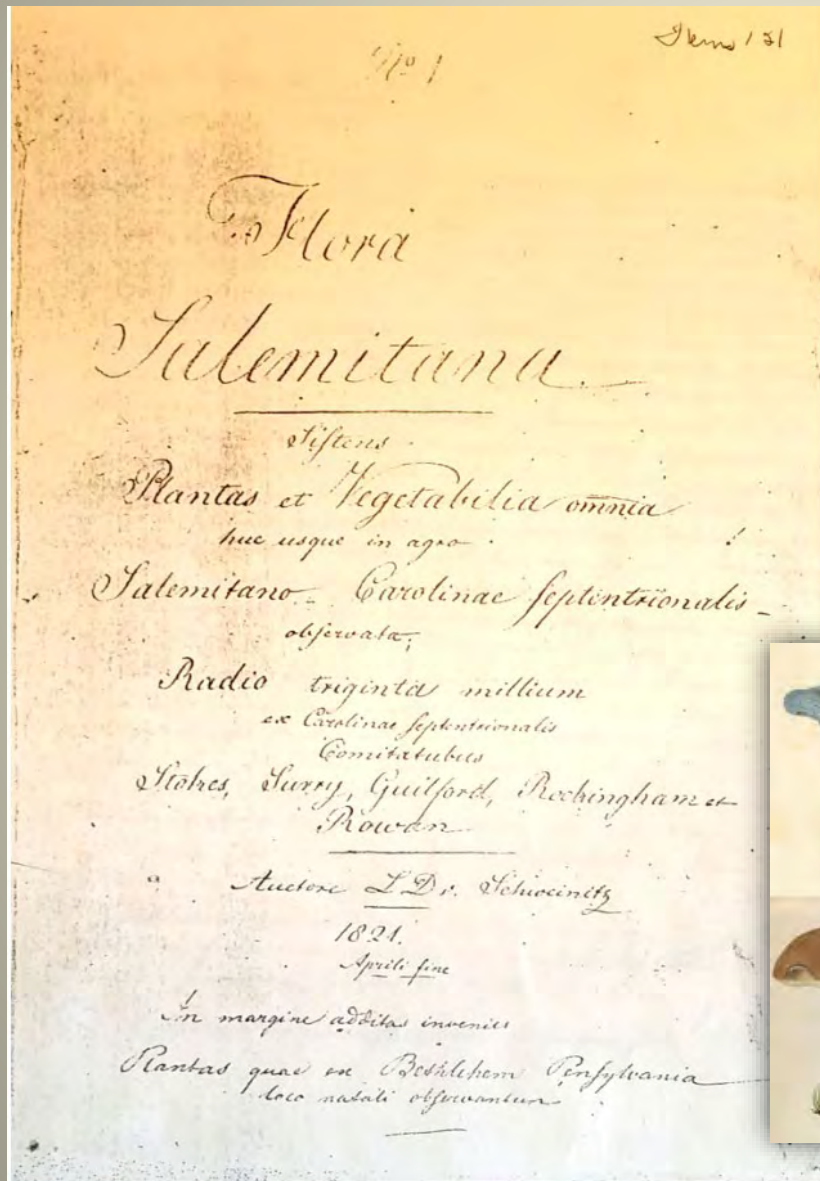 No 1
Flora
Salemitana
Sistens
Plantas et Vegetabilia omnia
huc usque in agro
Salemitano Carolinae septentrionalis
observata,
Radio triginta millium
ex Carolinae septentrionalis
Comitatubus
Stokes, Surry, Guilford, Rockingham et
Rowan
Auctore L D v. Schweinitz
1821.
Aprili fine
In margine additas invenies
Plantas quae ex Bethlehem Pensylvania
loco natali observantur